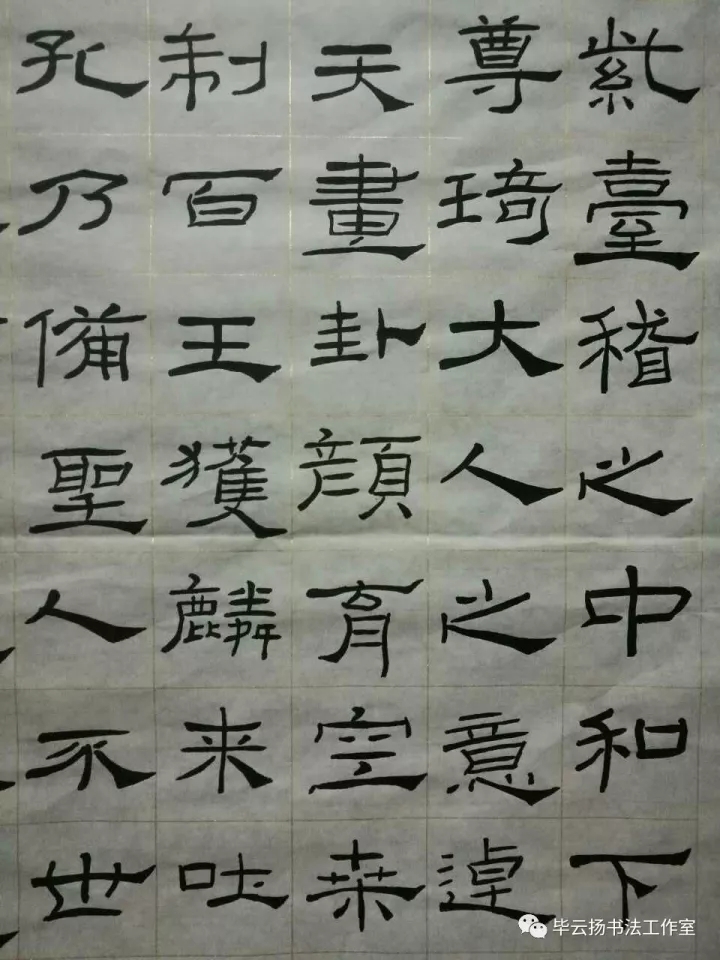 紫臺稽之中和下
尊琦大人之意逴
天畫卦顏育空桒
制百王獲麟来吐
孔乃備聖人不世
毕云扬书法工作室